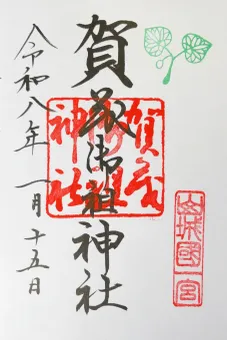 山城國一宮
賀茂御祖神社
賀茂
御祖
神社
令和八年一月十五日